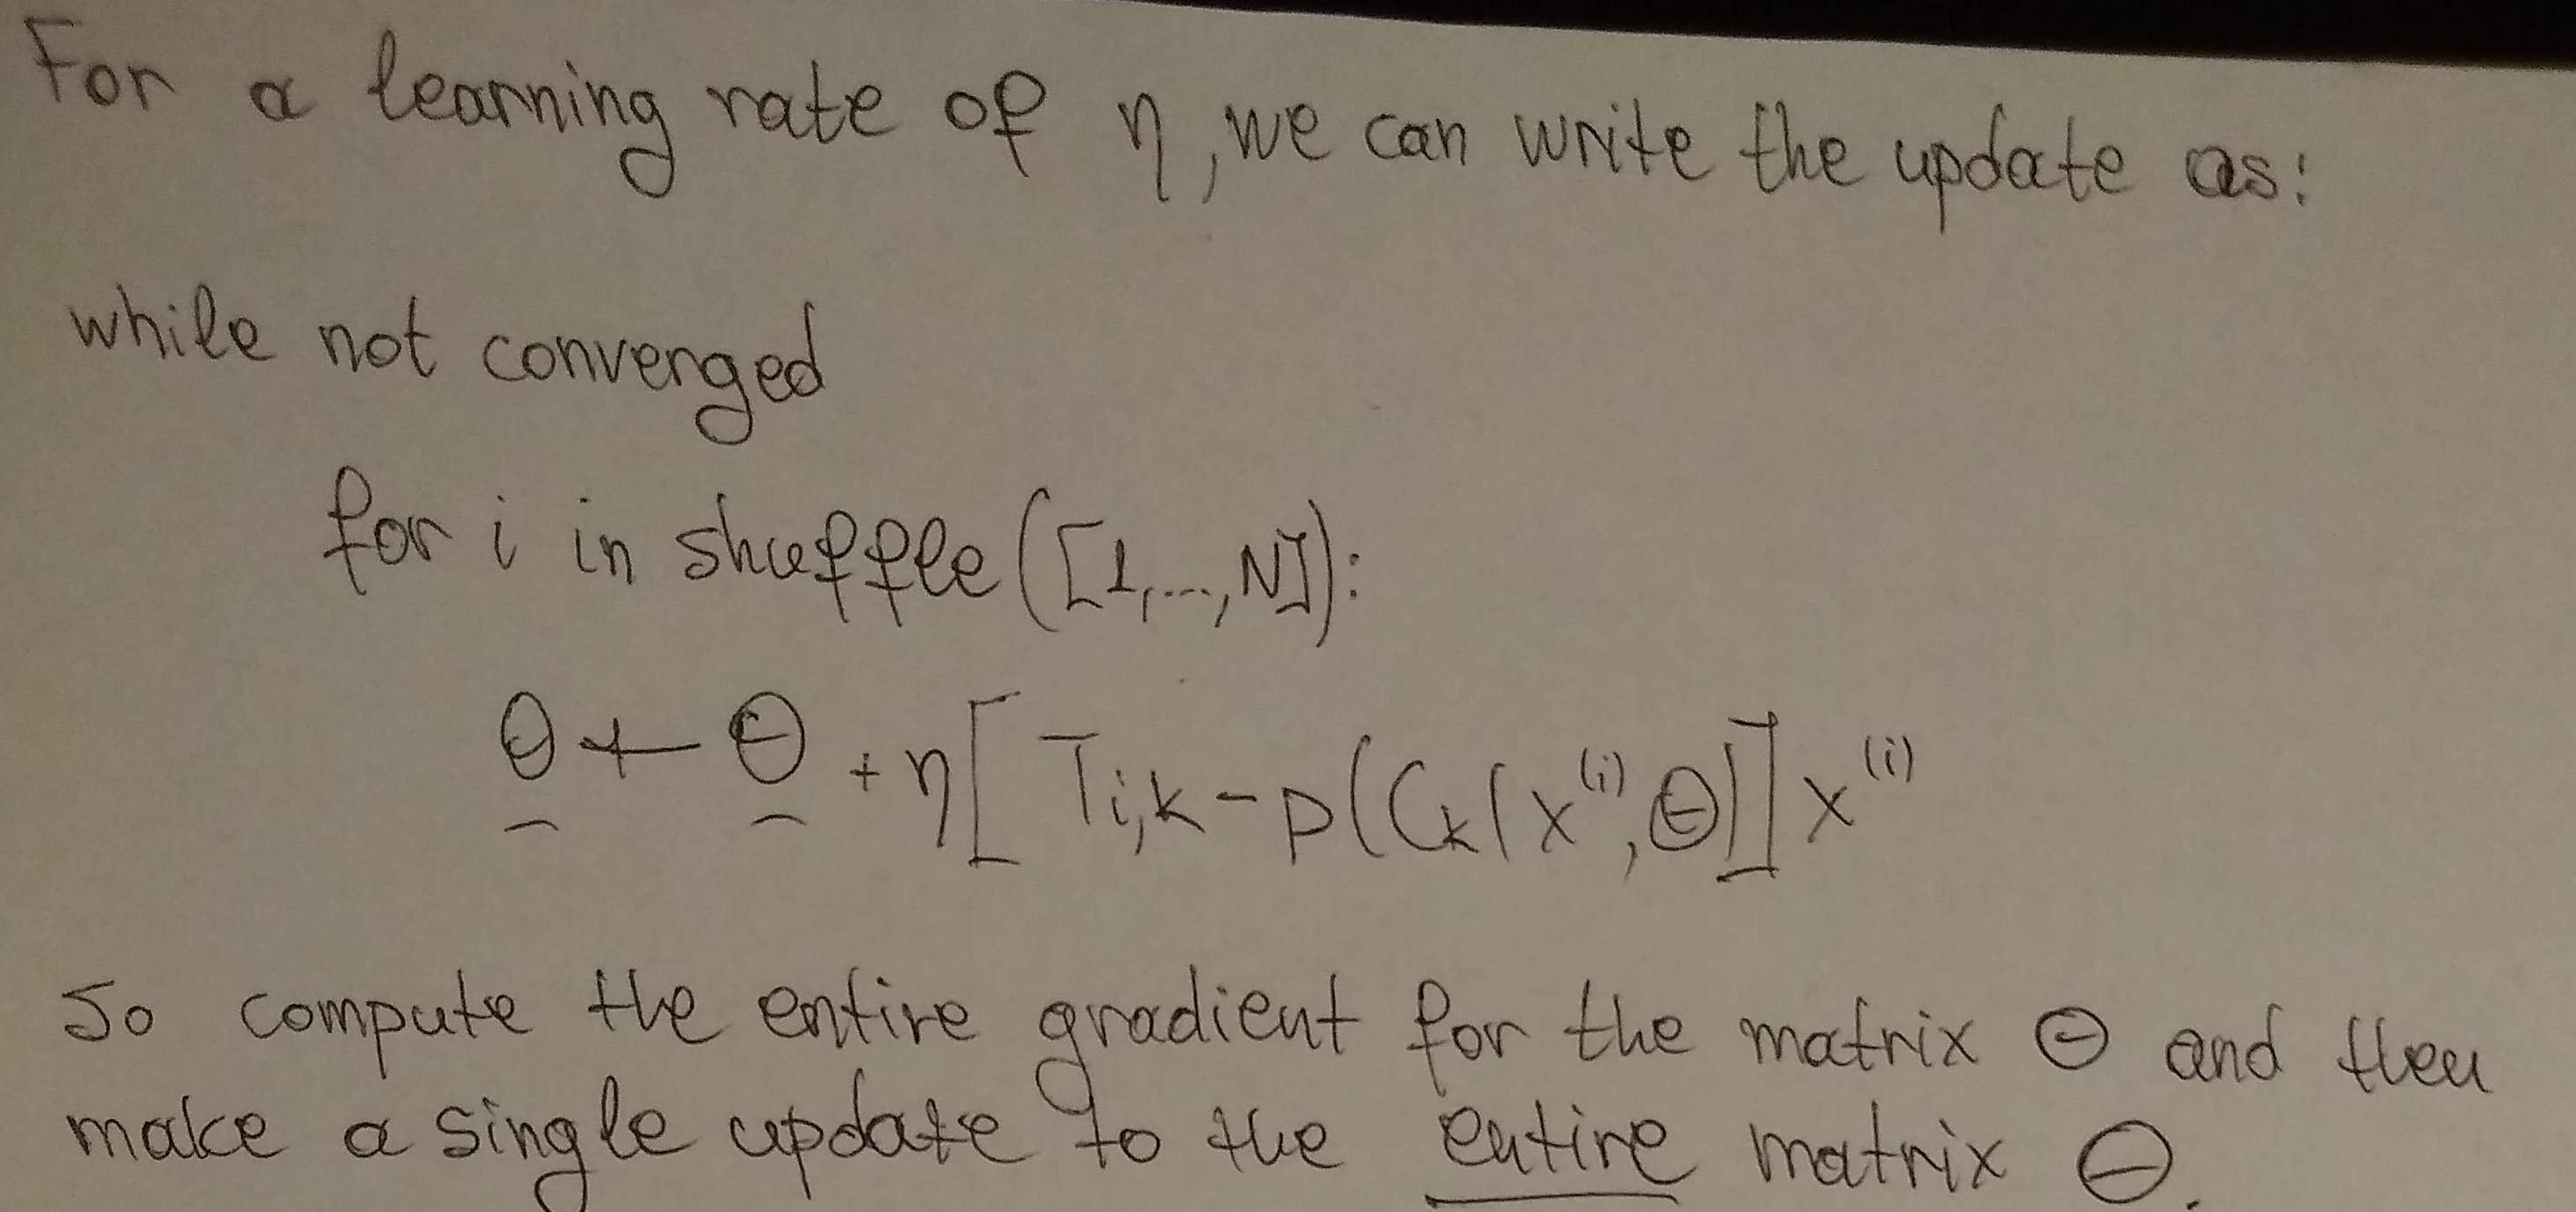 For a learning rate of η, we can write the update as:
while not converged
for i in shuffle([1,...,N]):
Θ ← Θ + η[T_{i,k} - p(C_k | x^{(i)}, Θ)] x^{(i)}
So compute the entire gradient for the matrix Θ and then
make a single update to the entire matrix Θ.